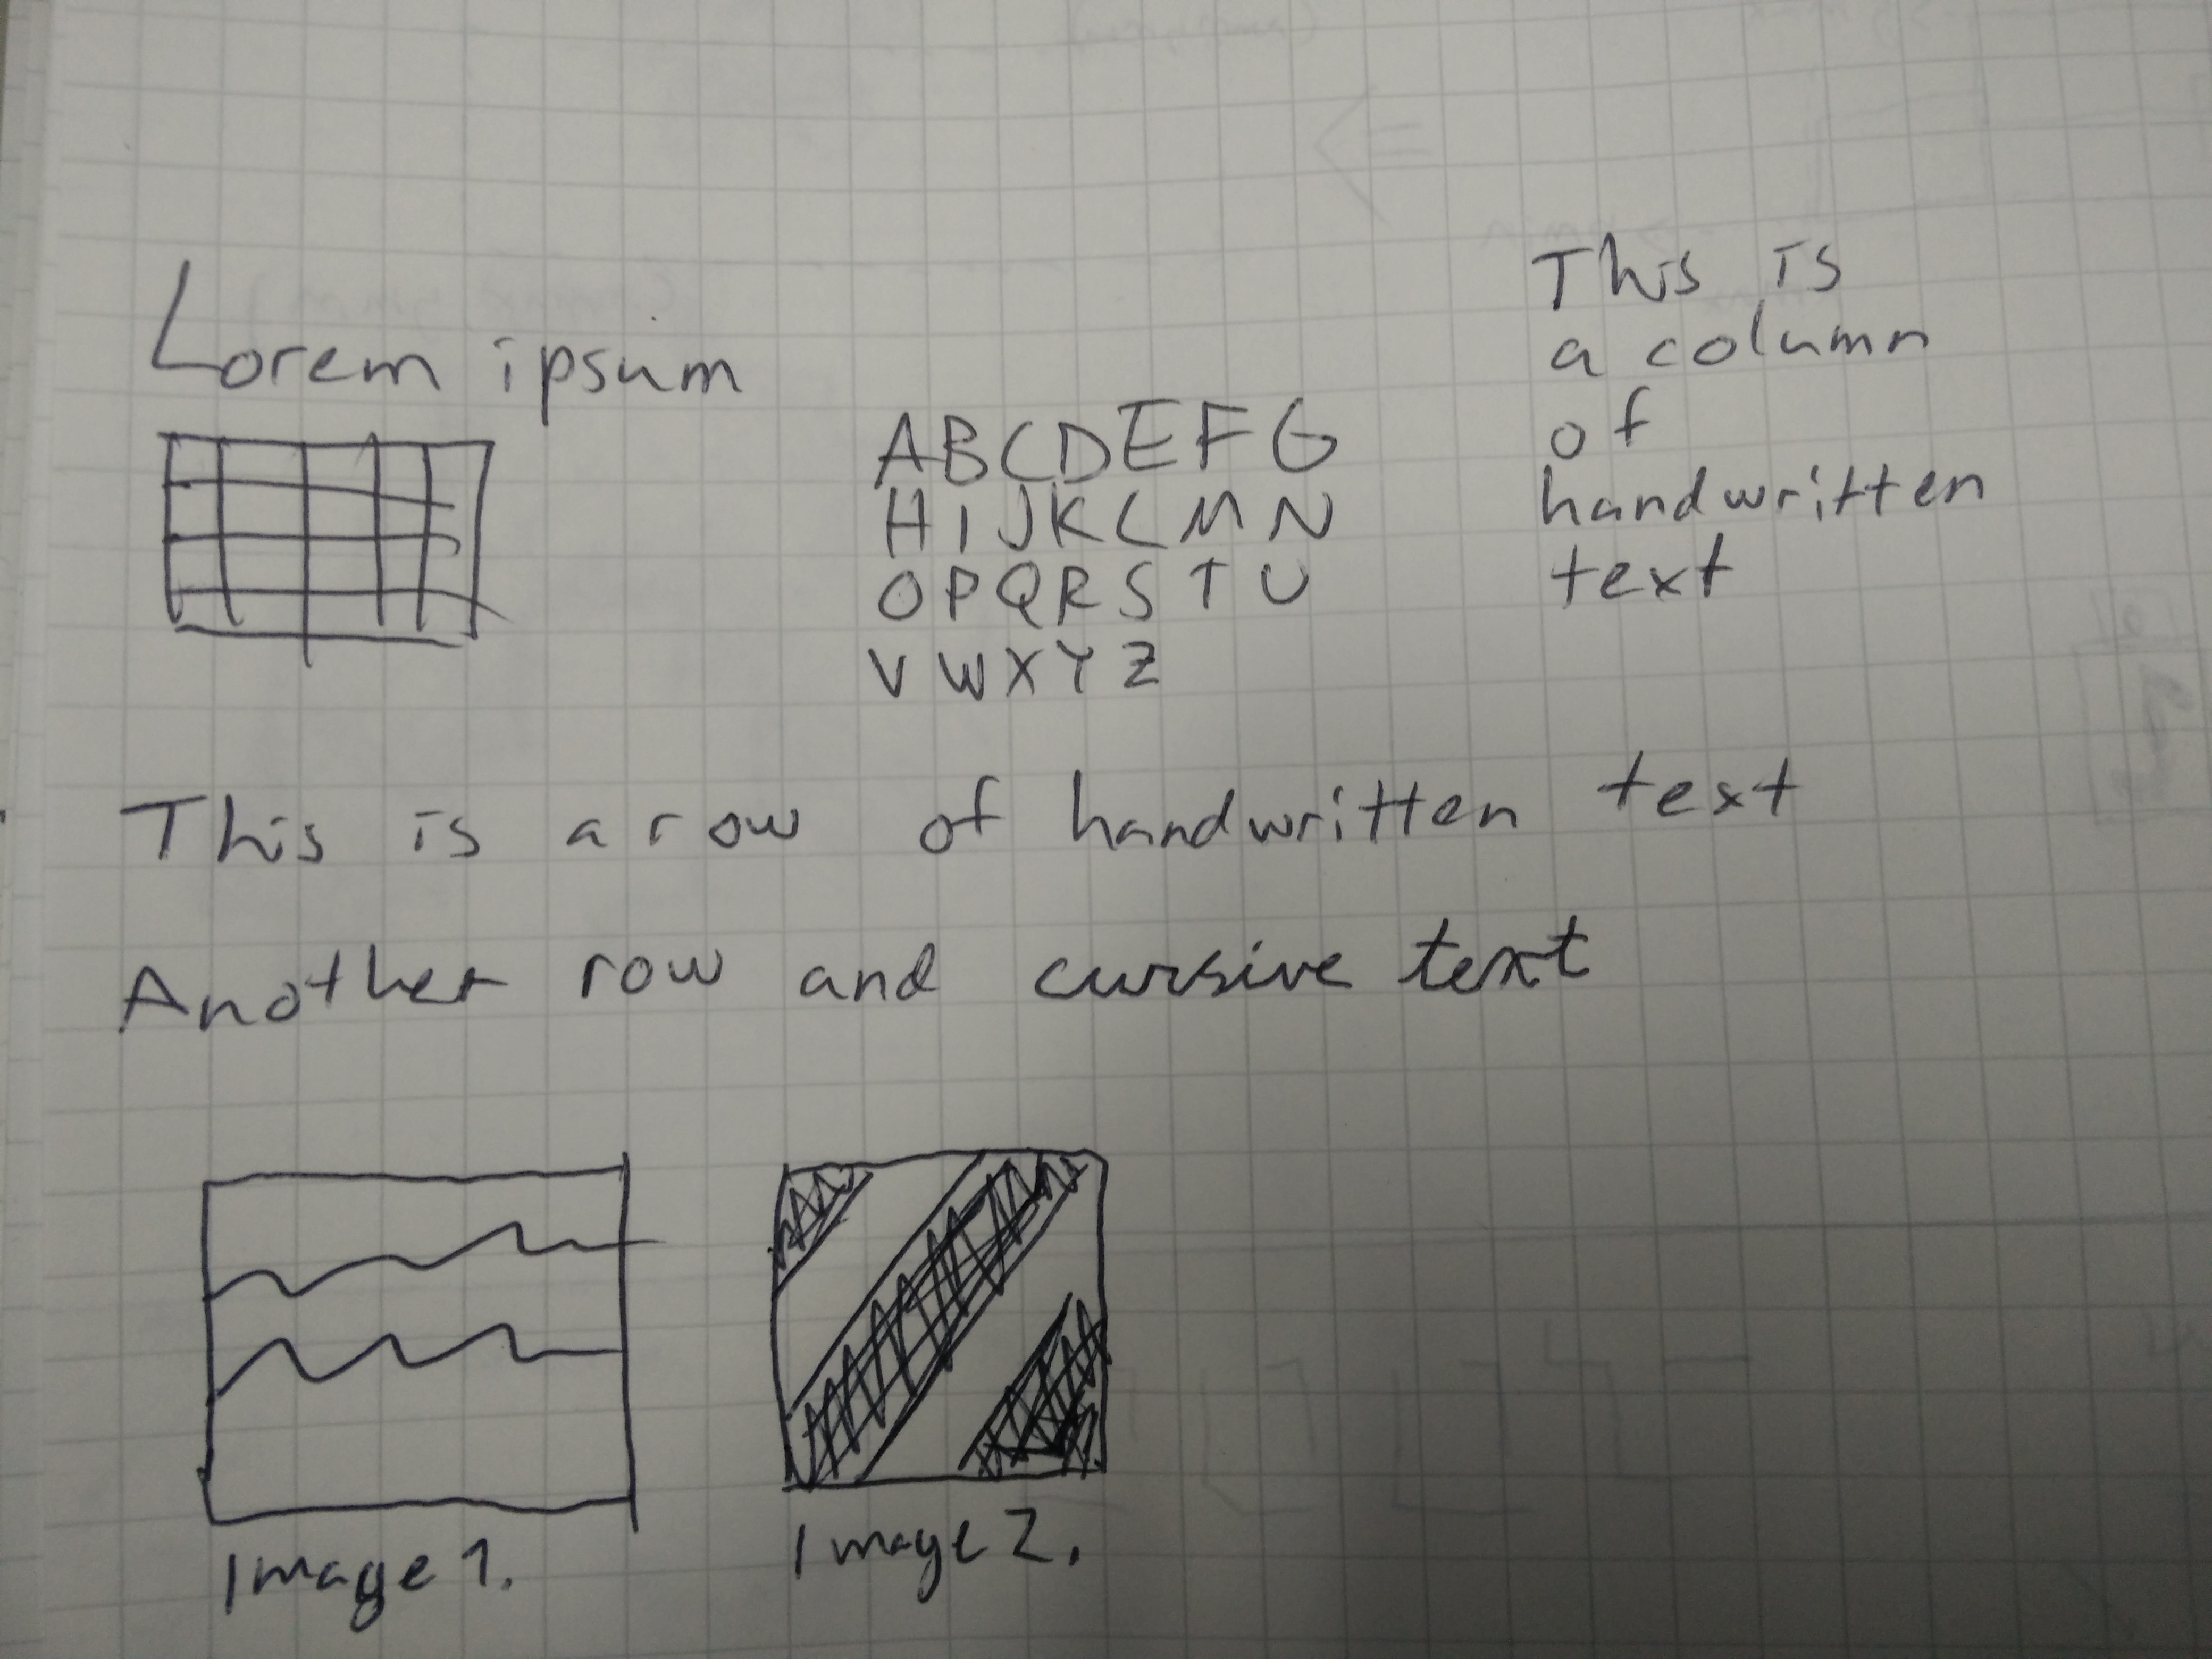 Lorem ipsum
ABCDEFG
HIJKLMN
OPQRSTU
VWXYZ
This is
a column
of
handwritten
text
This is a row of handwritten text
Another row and cursive text
Image 1.
Image 2.